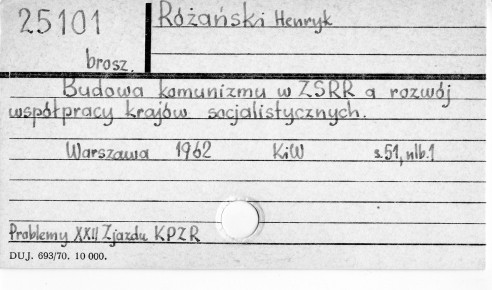 25101
Różański Henryk
brosz.
Budowa komunizmu w ZSRR a rozwój
współpracy krajów socjalistycznych.
Warszawa 1962 KiW s.51, nlb.1
Problemy XXII Zjazdu KPZR
DUJ. 693/70. 10 000.